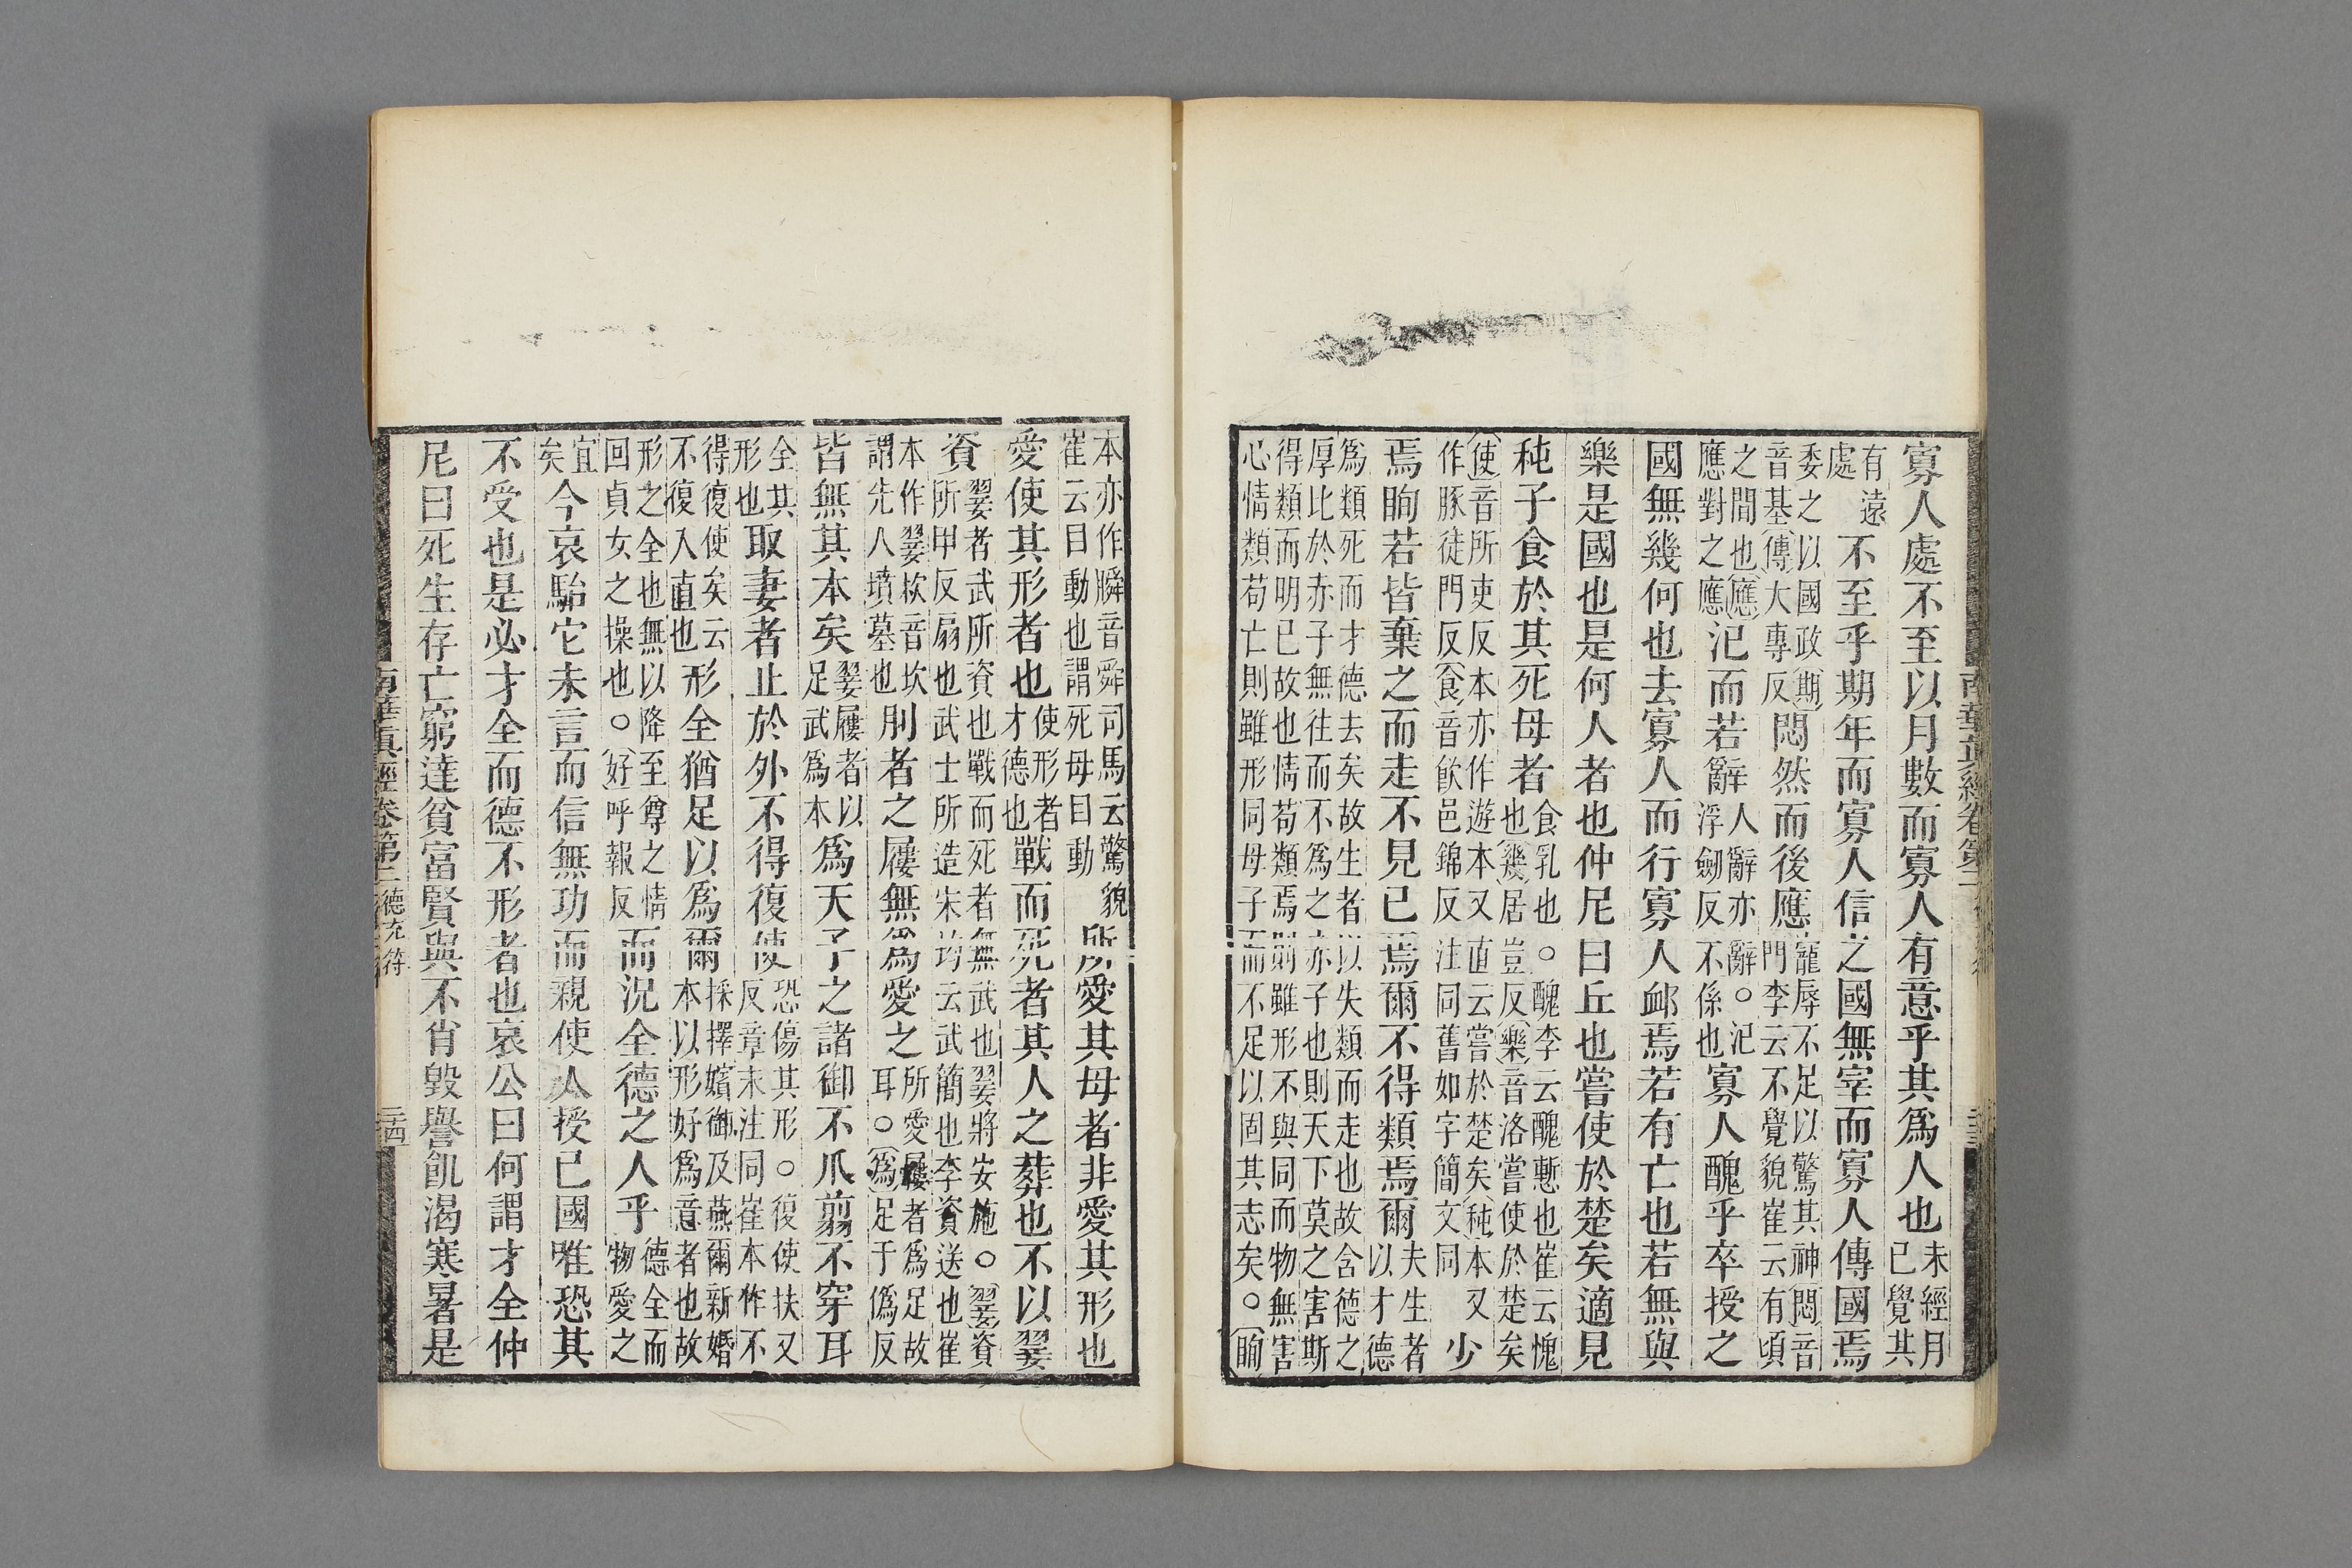 寡人處不至以月數而寡人有意乎其爲人也未經月已覺其
有遠處不至乎期年而寡人信之國無宰而寡人傳國焉
委之以國政(期)音基(傳)大專反悶然而後應寵辱不足以驚其神(悶)音門李云不覺貌崔云有頃
之間也(應)應對之應氾而若辭人辭亦辭○氾浮劒反不係也寡人醜乎卒授之
國無幾何也去寡人而行寡人卹焉若有亡也若無與
樂是國也是何人者也仲尼曰丘也嘗使於楚矣適見
㹠子食於其死母者食乳也○醜李云醜慙也崔云愧也(幾)居豈反(樂)音洛嘗使於楚矣
(使)音所吏反本亦作遊本又直云嘗於楚矣(㹠)本又作豚徒門反(食)音飮邑錦反注同舊如字簡文同少
焉眴若皆棄之而走不見已焉爾不得類焉爾夫生者以才德
爲類死而才德去矣故生者以失類而走也故含德之厚比於赤子無往而不爲之赤子也則天下莫之害斯
得類而明已故也情苟類焉則雖形不與同而物無害心情類苟亡則雖形同母子而不足以固其志矣○(眴
南華真經卷第二
本亦作瞬音舜司馬云驚貌崔云目動也謂死母目動所愛其母者非愛其形也
愛使其形者也使形者才德也戰而死者其人之葬也不以翣
資翣者武所資也戰而死者無武也翣將安施○(翣)資所甲反扇也武士所造宋均云武簡也李資送也崔
本作翣㰤音坎謂先人墳墓也刖者之屨無爲愛之所愛屨者爲足故耳○(爲)足于僞反
皆無其本矣翣屨者以足武爲本爲天子之諸御不爪翦不穿耳
全其形也取妻者止於外不得復使恐傷其形○復使扶又反章末注同崔本作不
得復使矣云不復入直也形全猶足以爲爾採擇嬪御及燕爾新婚本以形好爲意者也故
形之全也無以降至尊之情回貞女之操也○(好)呼報反而況全德之人乎德全而物愛之
宜矣今哀駘它未言而信無功而親使人授已國唯恐其
不受也是必才全而德不形者也哀公曰何謂才全仲
尼曰死生存亡窮達貧富賢與不肖毀譽飢渴寒暑是
南華真經卷第二德充符 三四